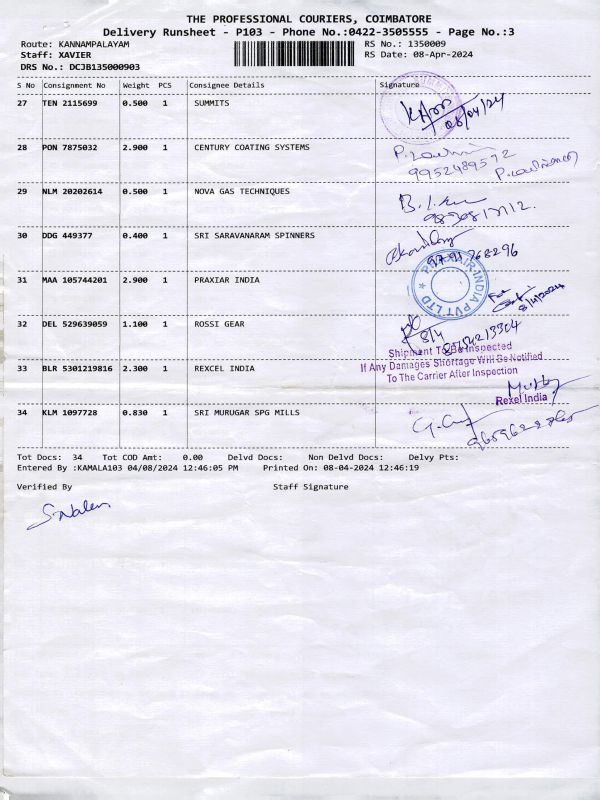 THE PROFESSIONAL COURIERS, COIMBATORE
Delivery Runsheet - P103 - Phone No.:0422-3505555 - Page No.:3
Route: KANNAMPALAYAM RS No.: 1350009
Staff: XAVIER RS Date: 08-Apr-2024
DRS No.: DCJB135000903
S No Consignment No Weight PCS Consignee Details Signature
27 TEN 2115699 0.500 1 SUMMITS
08/04/24
28 PON 7875032 2.900 1 CENTURY COATING SYSTEMS
9952489572
29 NLM 20202614 0.500 1 NOVA GAS TECHNIQUES
30 DDG 449377 0.400 1 SRI SARAVANARAM SPINNERS
9791768296
31 MAA 105744201 2.900 1 PRAXIAR INDIA
INDIA PVT LTD
For
8/4/2024
32 DEL 529639059 1.100 1 ROSSI GEAR
8/4
Shipment To Be Inspected
If Any Damages Shortage Will Be Notified
To The Carrier After Inspection
33 BLR 5301219816 2.300 1 REXCEL INDIA
Rexel India
34 KLM 1097728 0.830 1 SRI MURUGAR SPG MILLS
Tot Docs: 34 Tot COD Amt: 0.00 Delvd Docs: Non Delvd Docs: Delvy Pts:
Entered By :KAMALA103 04/08/2024 12:46:05 PM Printed On: 08-04-2024 12:46:19
Verified By Staff Signature